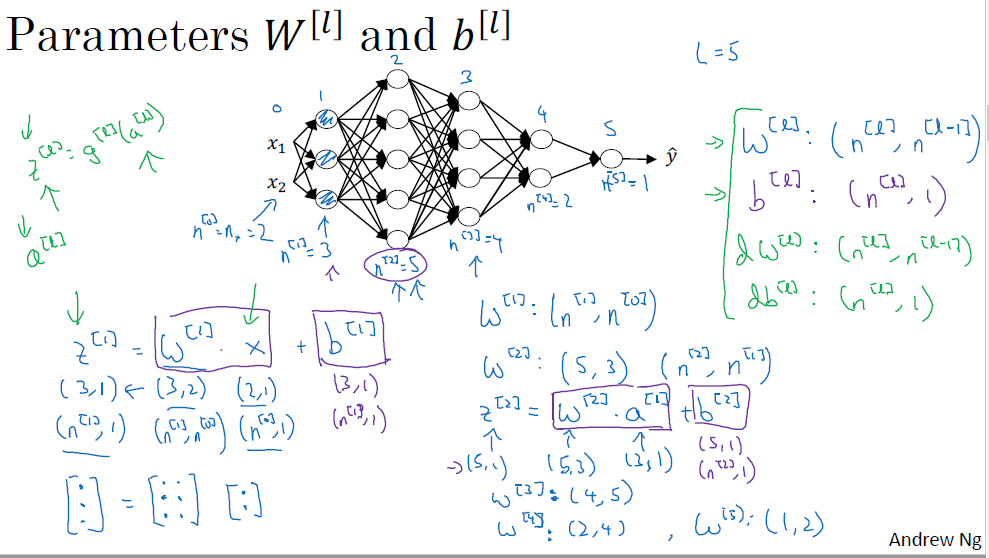 Parameters W^[l] and b^[l]
L = 5
0 1 2 3 4 5
x₁
x₂
ŷ
z^[l] = g^[l](a^[l])
a^[l]
n^[0] = n_x = 2
n^[1] = 3
n^[2] = 5
n^[3] = 4
n^[4] = 2
n^[5] = 1
→ W^[l] : (n^[l], n^[l-1])
→ b^[l] : (n^[l], 1)
dW^[l] : (n^[l], n^[l-1])
db^[l] : (n^[l], 1)
z^[1] = W^[1] · x + b^[1]
(3,1) ← (3,2) (2,1) (3,1)
(n^[1],1) (n^[1],n^[0]) (n^[0],1) (n^[1],1)
[⋮] = [⋮ ⋮] [:]
W^[1] : (n^[1], n^[0])
W^[2] : (5,3) (n^[2], n^[1])
z^[2] = W^[2] · a^[1] + b^[2]
→ (5,1) (5,3) (3,1) (5,1)
(n^[2],1)
W^[3] : (4,5)
W^[4] : (2,4) , W^[5] : (1,2)
Andrew Ng